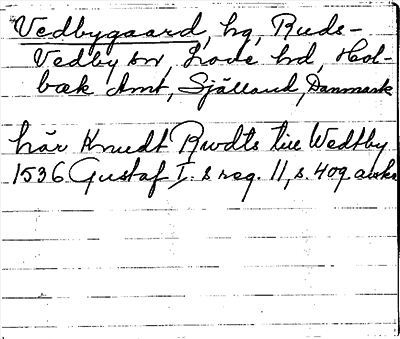 Vedbygaard, hg, Ruds-
Vedby sn, Løve hd, Hol-
bæk Amt, Själland, Danmark
här Knudt Rwdts till Wedtby
1536 Gustaf I:s reg. 11, s. 409 avskr